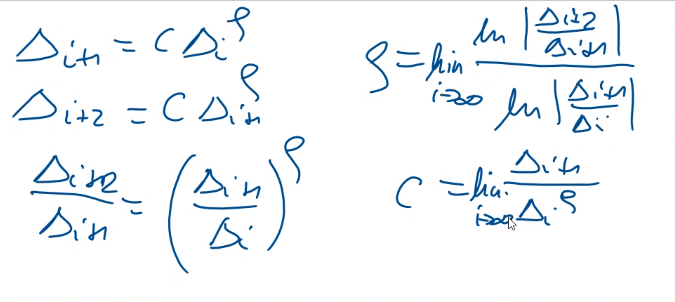 Δ_{i+1} = C Δ_i^ρ
Δ_{i+2} = C Δ_{i+1}^ρ
\frac{Δ_{i+2}}{Δ_{i+1}} = \left(\frac{Δ_{i+1}}{Δ_i}\right)^ρ
ρ = \lim_{i→∞} \frac{\ln\left|\frac{Δ_{i+2}}{Δ_{i+1}}\right|}{\ln\left|\frac{Δ_{i+1}}{Δ_i}\right|}
C = \lim_{i→∞} \frac{Δ_{i+1}}{Δ_i^ρ}